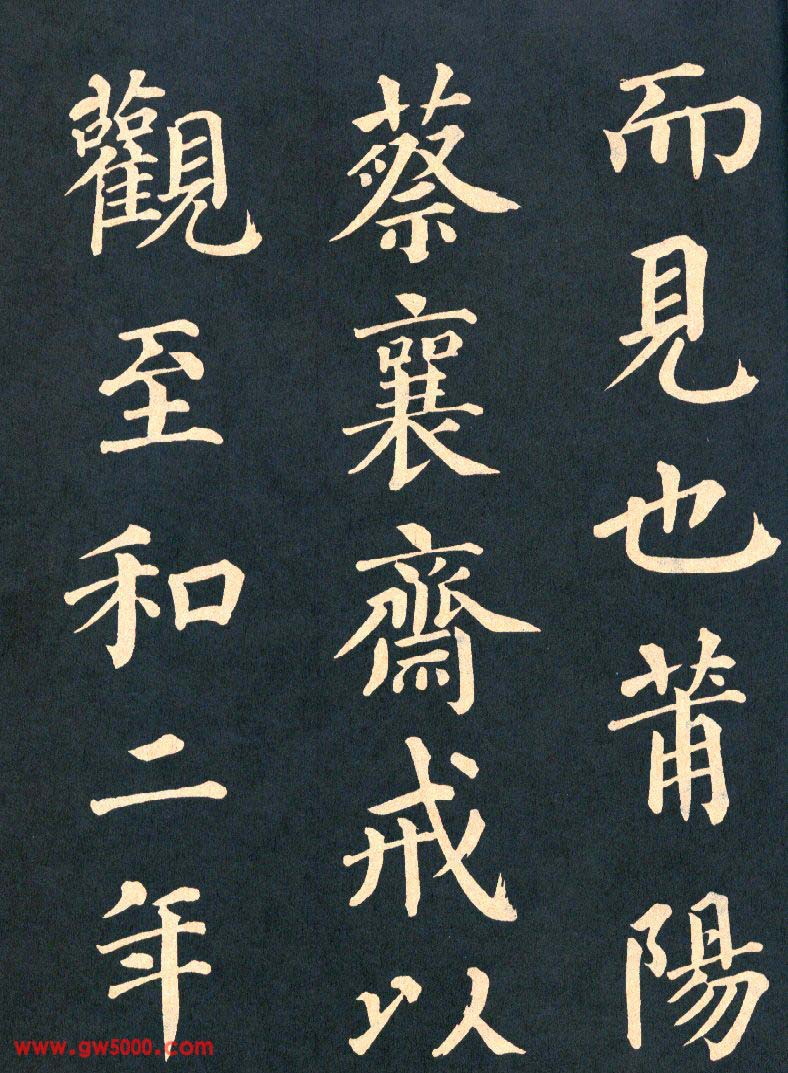 而見也莆陽
蔡襄齋戒以
觀至和二年
www.gw5000.com